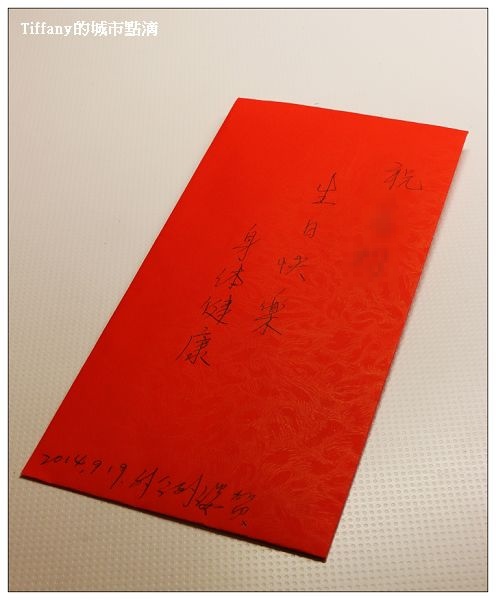 Tiffany的城市點滴
祝
生日快樂
身体健康
2014.9.19.
賀